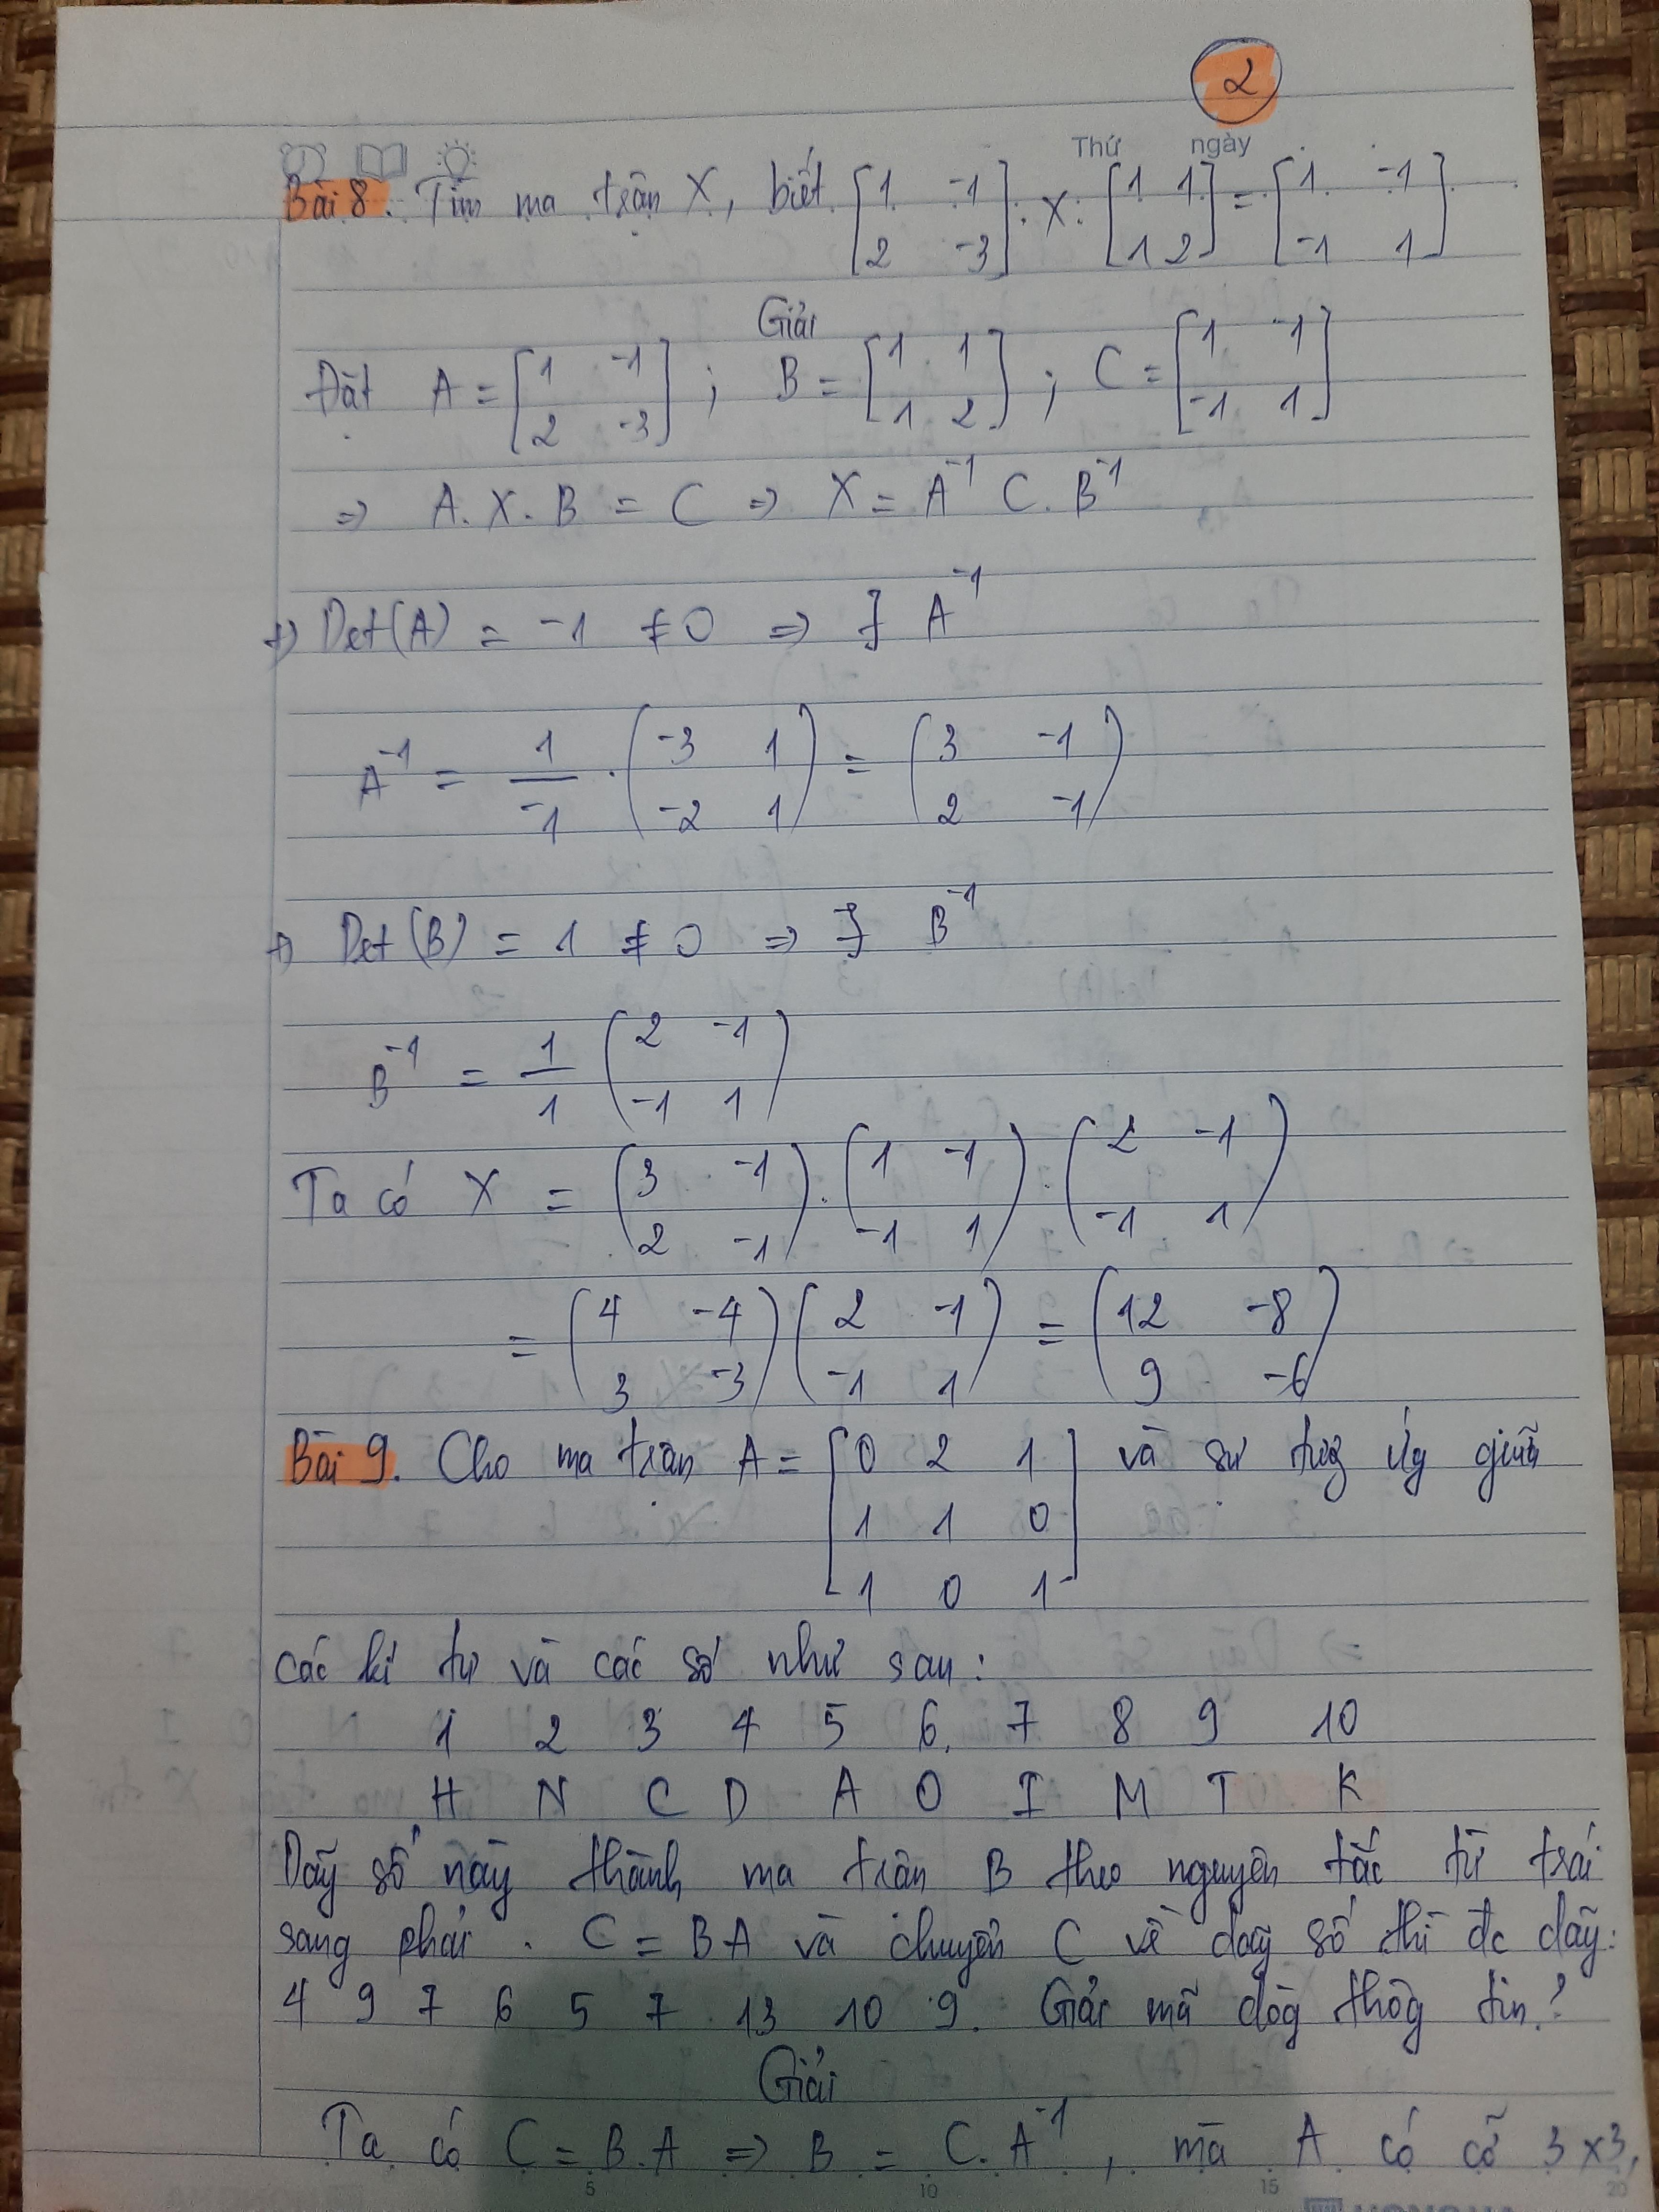 2
Thứ ngày
Bài 8. Tìm ma trận X, biết [1 -1; 2 -3] . X . [1 1; 1 2] = [1 -1; -1 1]
Giải
Đặt A = [1 -1; 2 -3] ; B = [1 1; 1 2] ; C = [1 -1; -1 1]
=> A. X. B = C => X = A⁻¹ C. B⁻¹
+) Det(A) = -1 ≠ 0 => ∃ A⁻¹
A⁻¹ = 1/-1 . (-3 1; -2 1) = (3 -1; 2 -1)
+) Det(B) = 1 ≠ 0 => ∃ B⁻¹
B⁻¹ = 1/1 (2 -1; -1 1)
Ta có X = (3 -1; 2 -1) . (1 -1; -1 1) . (2 -1; -1 1)
= (4 -4; 3 -3) (2 -1; -1 1) = (12 -8; 9 -6)
Bài 9. Cho ma trận A = [0 2 1; 1 1 0; 1 0 1] và sự tưg ứg giữa
các kí tự và các số như sau:
1 2 3 4 5 6 7 8 9 10
H N C D A O I M T K
Dãy số này thành ma trận B theo nguyên tắc từ trái
sang phải. C = BA và chuyển C về dãy số thì đc dãy:
4 9 7 6 5 7 13 10 9. Giải mã dòg thôg tin?
Giải
Ta có C = B.A => B = C. A⁻¹, mà A có cỡ 3x3,
5 10 15 20